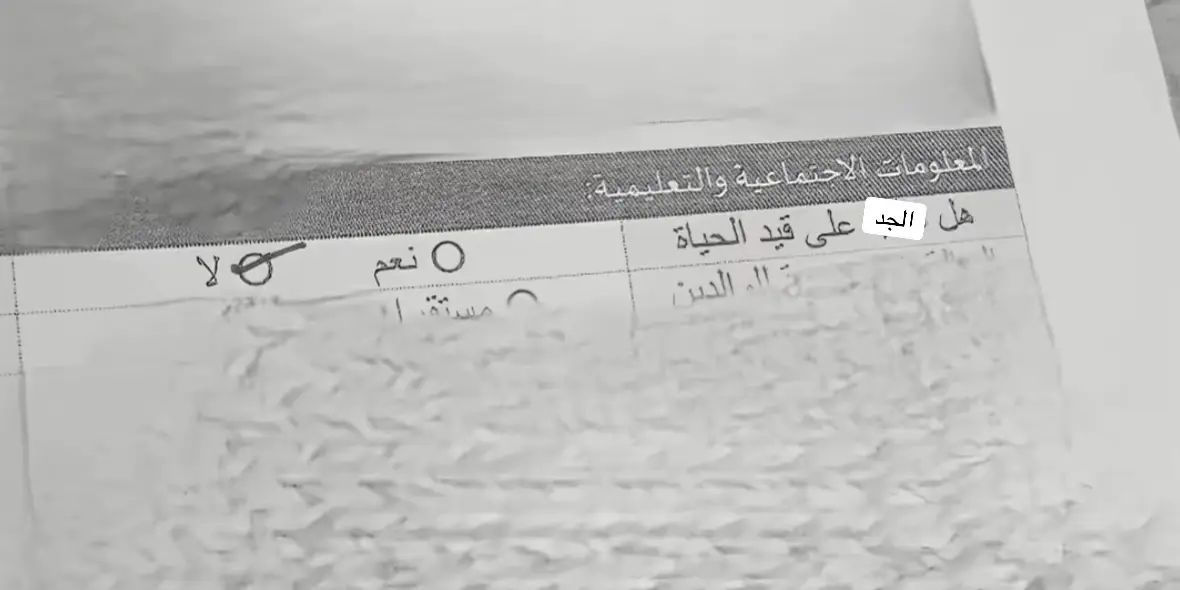 المعلومات الاجتماعية والتعليمية:
هل الجد على قيد الحياة نعم لا